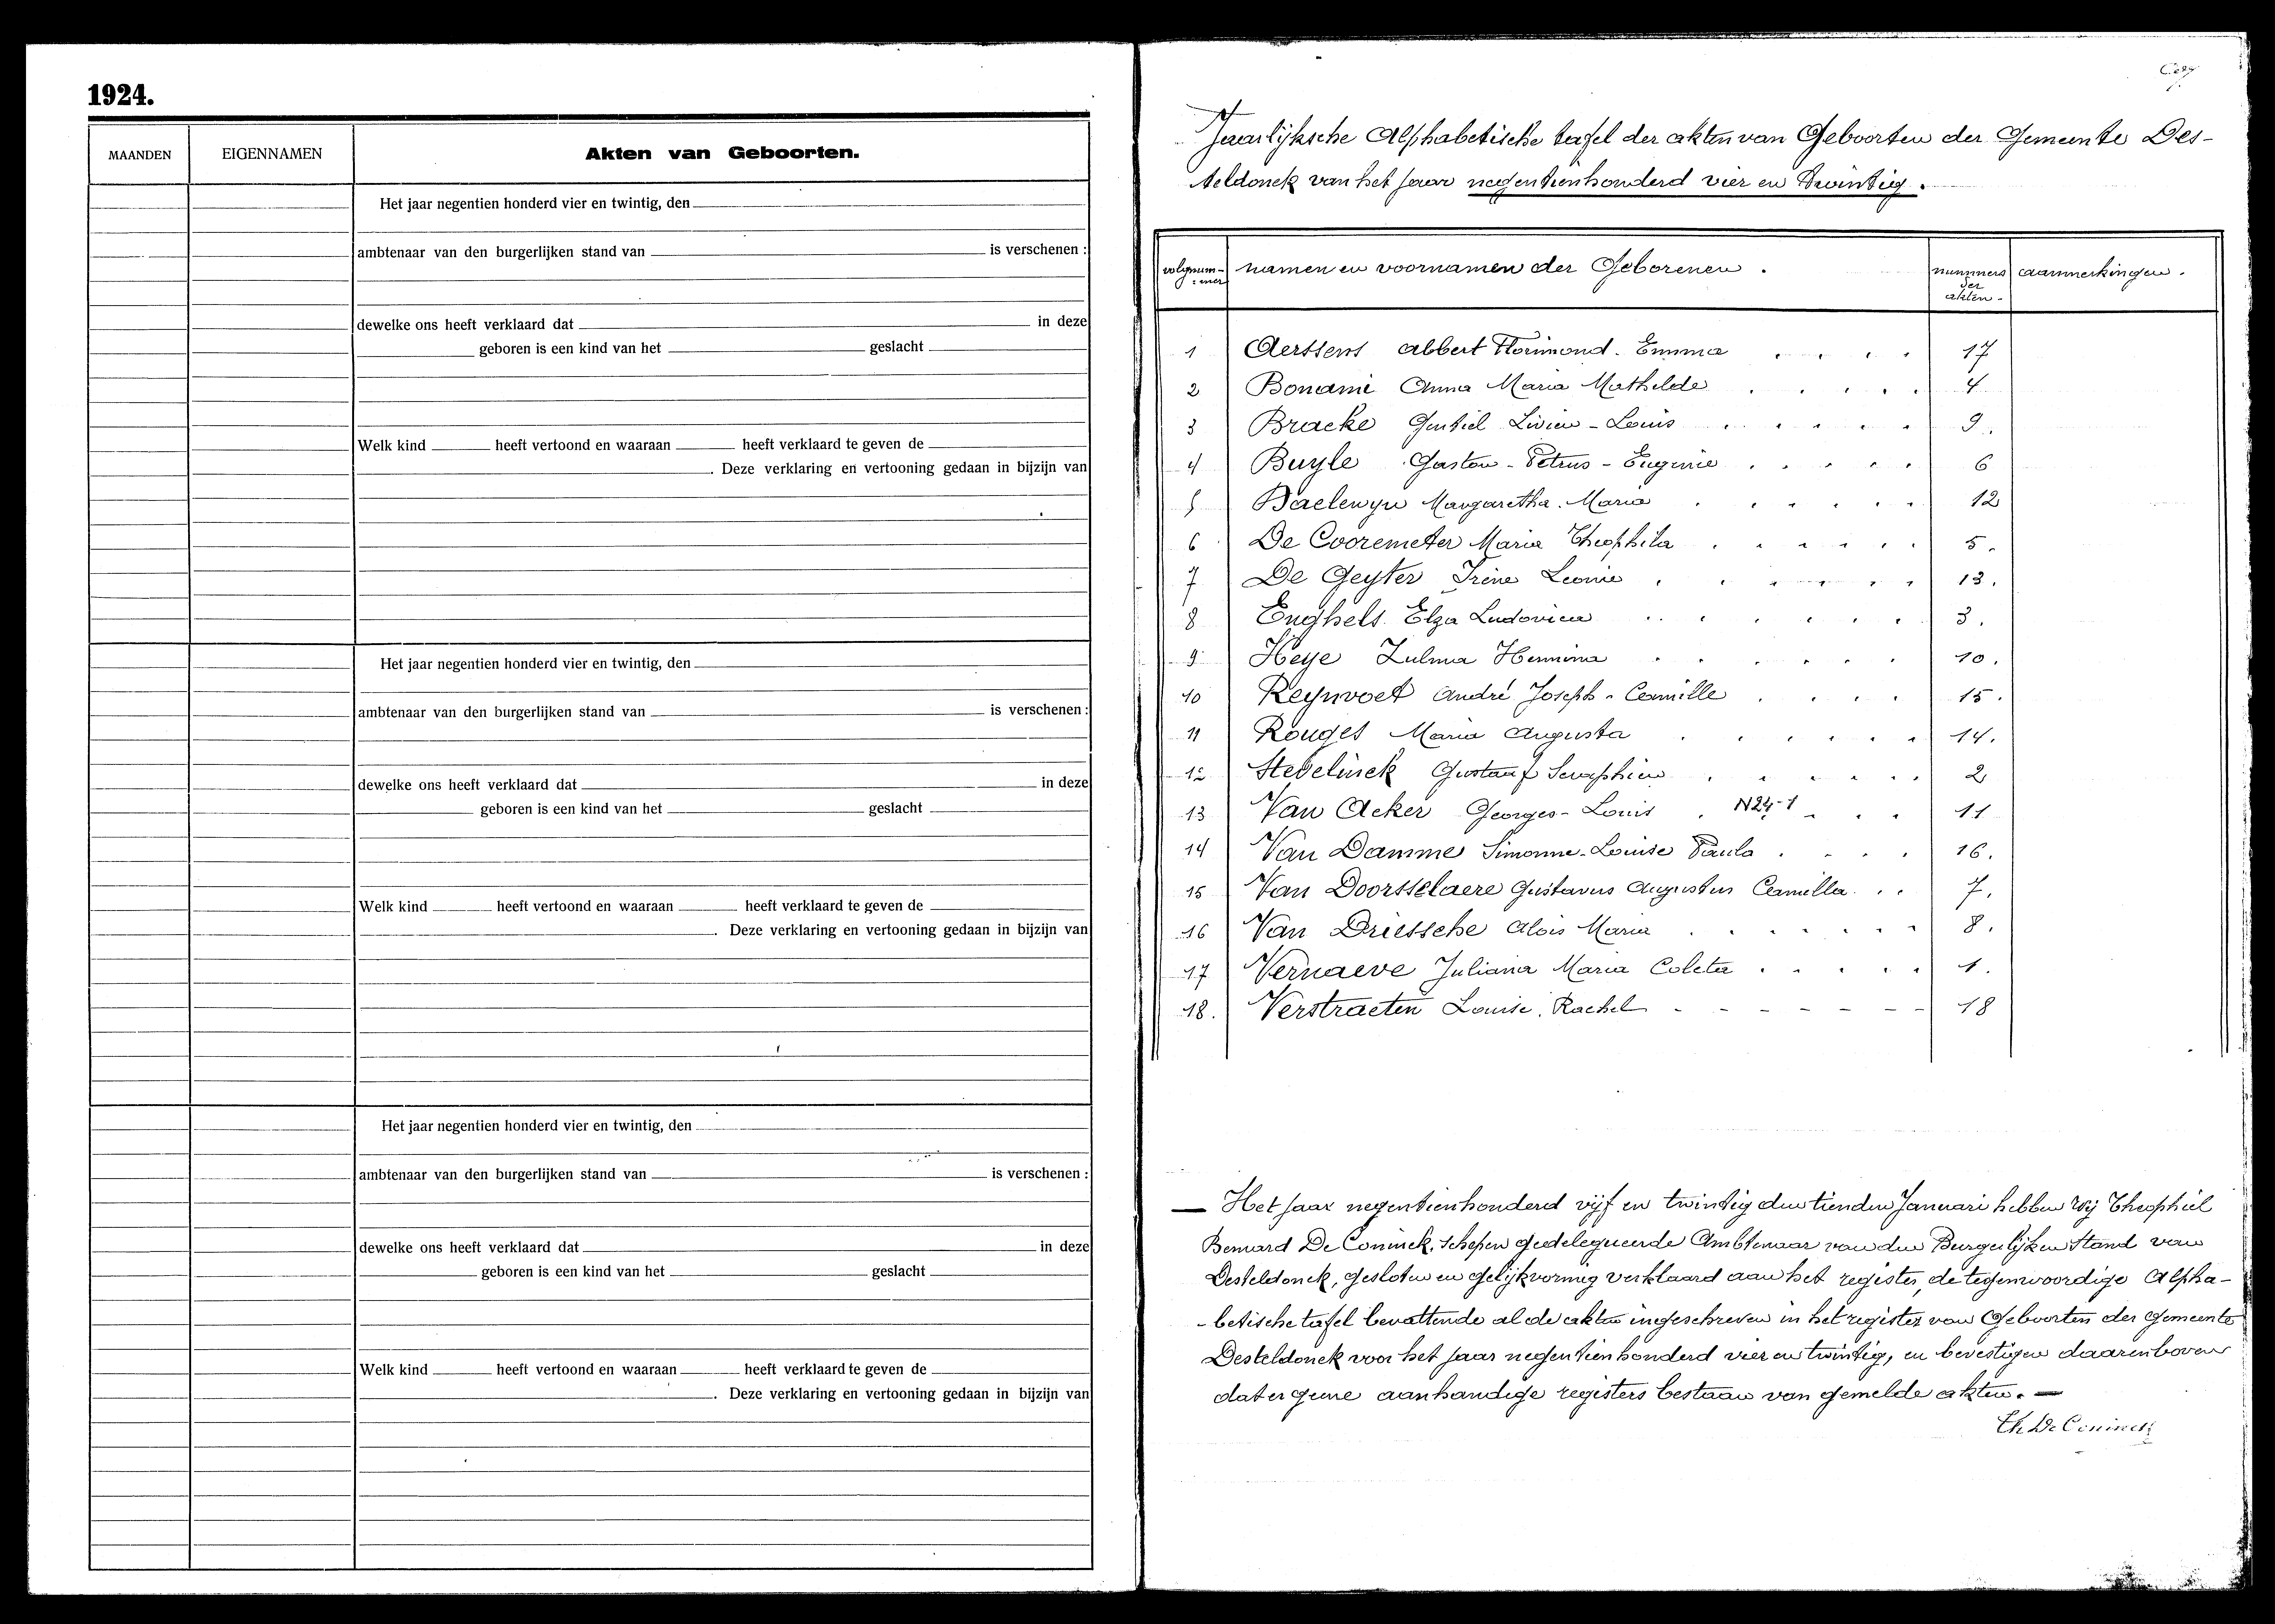 1924.
MAANDEN EIGENNAMEN Akten van Geboorten.
Het jaar negentien honderd vier en twintig, den
ambtenaar van den burgerlijken stand van is verschenen :
dewelke ons heeft verklaard dat in deze
geboren is een kind van het geslacht
Welk kind heeft vertoond en waaraan heeft verklaard te geven de
. Deze verklaring en vertooning gedaan in bijzijn van
Het jaar negentien honderd vier en twintig, den
ambtenaar van den burgerlijken stand van is verschenen :
dewelke ons heeft verklaard dat in deze
geboren is een kind van het geslacht
Welk kind heeft vertoond en waaraan heeft verklaard te geven de
. Deze verklaring en vertooning gedaan in bijzijn van
Het jaar negentien honderd vier en twintig, den
ambtenaar van den burgerlijken stand van is verschenen :
dewelke ons heeft verklaard dat in deze
geboren is een kind van het geslacht
Welk kind heeft vertoond en waaraan heeft verklaard te geven de
. Deze verklaring en vertooning gedaan in bijzijn van
Jaarlijksche Alphabetische tafel der akten van Geboorten der Gemeente Des-
teldonck van het jaar negentienhonderd vier en twintig.
volgnum-mer namen en voornamen der Geborenen. nummers der akten- aanmerkingen.
1 Aerssens Albert Florimond. Emma 17
2 Bonami Anna Maria Mathilde 4
3 Bracke Gentiel Livien-Louis 9.
4 Buyle Gaston-Petrus-Eugenie 6
5 Daelewyn Margaretha. Maria 12
6 De Cooremeter Maria Theophila 5.
7 De Geyter Irène Leonie 13.
8 Enghels Elza Ludovica 3.
9 Heye Zulma Hermina 10.
10 Reynvoet André Joseph-Camille 15.
11 Rouges Maria Augusta 14.
12 Stevelinck Gustaaf Seraphien 2
13 Van Acker Georges-Louis N24-1 11
14 Van Damme Simonne-Louise Paula 16.
15 Van Doorsselaere Gustavus Augustus Camilla 7.
16 Van Driessche Alois Maria 8.
17 Vernaeve Juliana Maria Coleta 1.
18. Verstraeten Louise. Rachel 18
— Het jaar negentienhonderd vijf en twintig den tienden Januari hebben Wij Theophiel
Bernard De Coninck, Schepen gedelegueerde Ambtenaar van den Burgerlijken Stand van
Desteldonck, gesloten en gelijkvormig verklaard aan het register, de tegenwoordige Alpha-
-betische tafel bevattende al de akten ingeschreven in het register van Geboorten der gemeente
Desteldonck voor het jaar negentienhonderd vier en twintig, en bevestigen daarenboven
dat er geene aanhandige registers bestaan van gemelde akten. —
Th De Coninck